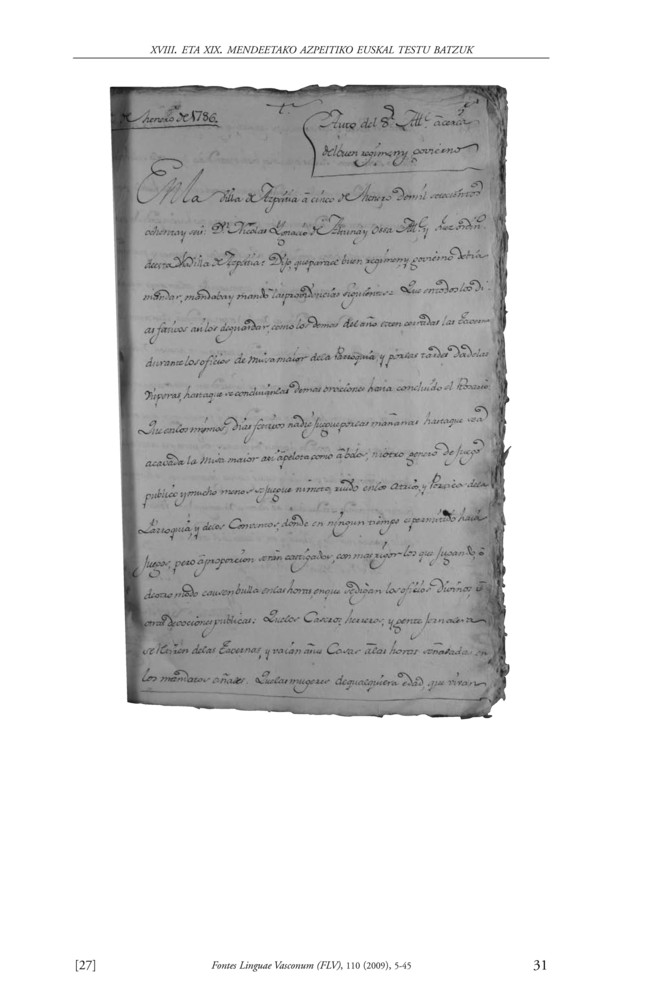 XVIII. ETA XIX. MENDEETAKO AZPEITIKO EUSKAL TESTU BATZUK
de henero de 1786.
Auto del Sr. Alle. acerca
del buen regimen y govierno
En la Villa de Azpeitia à cinco de henero de mil setecientos
ochenta y seis: Dn. Nicolas Ygnacio de Altuna y Alle. y Juez ordin.
de esta Villa de Azpeitia: Dijo, que para el buen regimen y govierno debia
mandar, mandaba y mandò las providencias siguientes: Que en todos los di-
as festivos asi los de guardar, como los demas del año esten cerradas las tavernas
durante los oficios de Misa maior de la Parroquia, y por las tardes dadas las
Visperas, hasta que se concluian las demas oraciones hasta concluido el Rosario
Que en los mismos dias festivos nadie juegue por las mañanas hasta que sea
acavada la Misa maior asi à pelota como à bolos, ni otro genero de juego
publico y mucho menos se juegue ni meta ruido en los atrios, y Porticos de la
Parroquia, y de los Conventos, donde en ningun tiempo es permitido hacer
juegos, pero à proporcion seràn castigados, con mas rigor los que jugando, ò
de otro modo causen bulla en las horas, en que se digan los oficios Divinos ù
otras devociones publicas: Que los Caseros, herreros, y gente
se retiren de las tavernas, y vaian à sus Casas à las horas señaladas en
los mandatos añales. Que las mugeres de qualquiera edad, que vivan
[27]
Fontes Linguae Vasconum (FLV), 110 (2009), 5-45
31